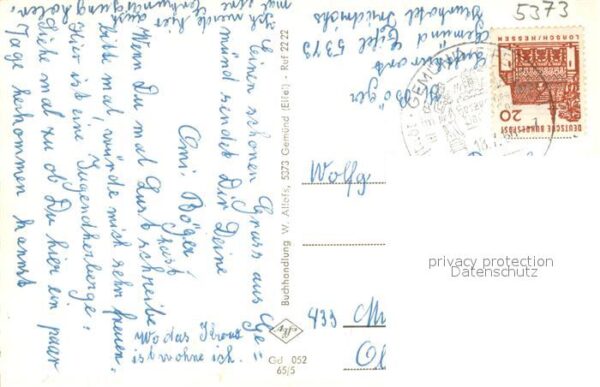 5373
H. Böger
Luftkurort
Gemünd Eifel 5373
Kurhotel Friedrichs
Einen schönen Gruss aus Ge=
münd sendet Dir Deine
Omi Böger.
Wenn Du mal Lust hast
schreibe
bitte mal, würde mich sehr freuen.
Hier ist eine Jugendherberge.
Siehe mal zu ob Du hier ein paar
Tage herkommen kannst
Ich werde hier auch
mal eine holen.
Wo das Kreuz
ist wohne ich.
Buchhandlung W. Allefs, 5373 Gemünd (Eifel) - Ruf 22 22
Gd 052
65/5
Wolfg
433 M
LORSCH/HESSEN
20
DEUTSCHE BUNDESPOST
GEMÜND
privacy protection
Datenschutz